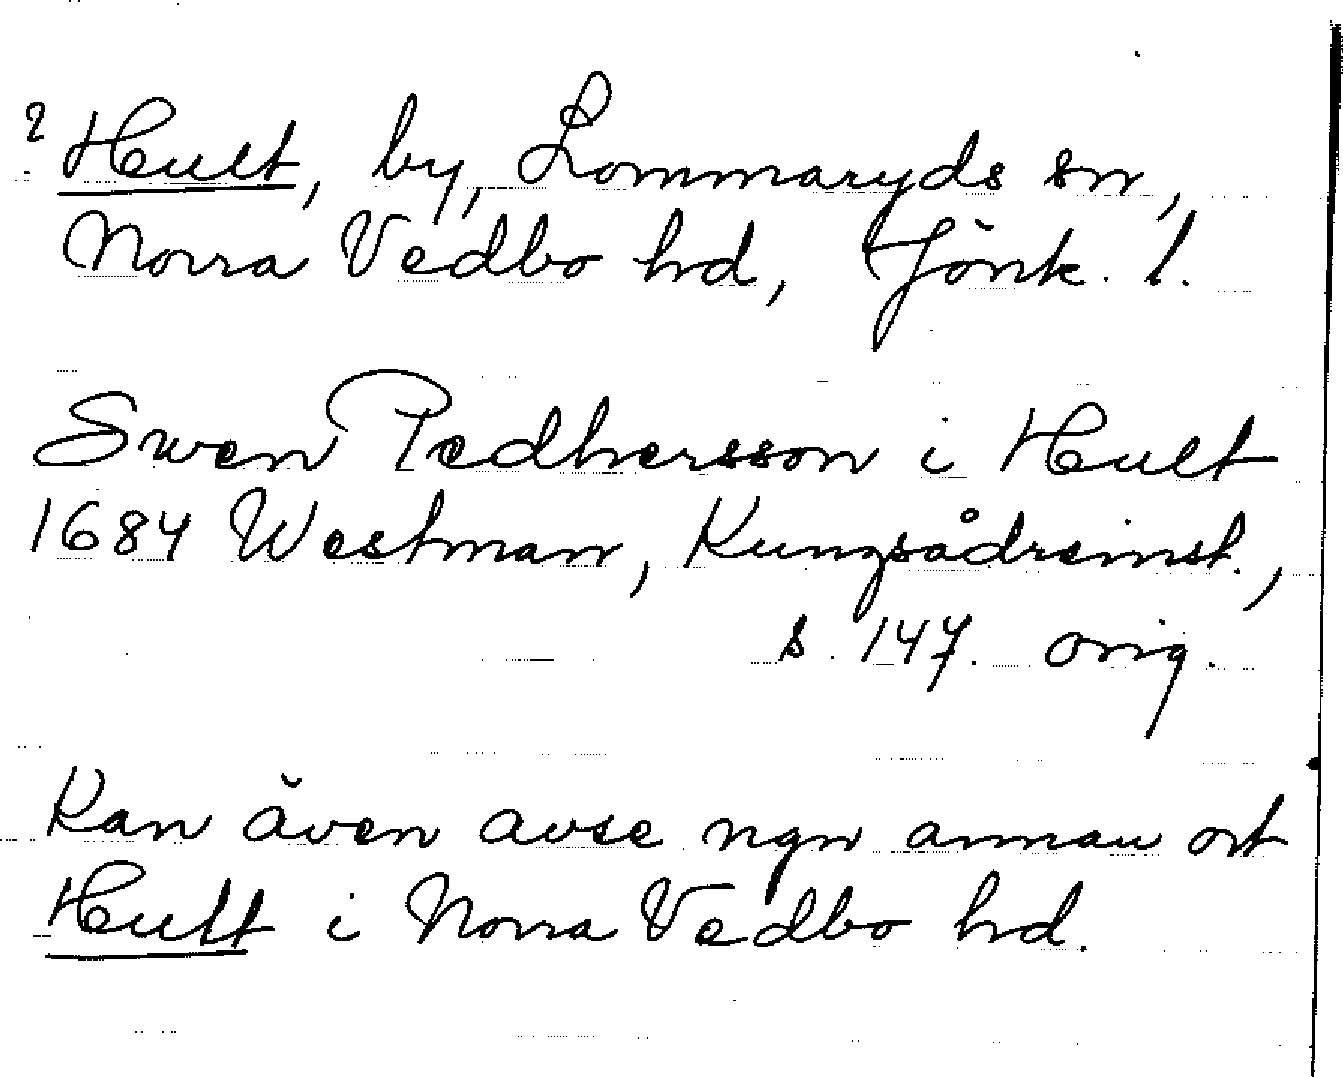 ? Hult, by, Lommaryds sn,
Norra Vedbo hd, Jönk. l.
Swen Pedhersson i Hult
1684 Westman, Kungsådreinst.,
s. 147. orig.
Kan även avse ngn annan ort
Hult i Norra Vedbo hd.